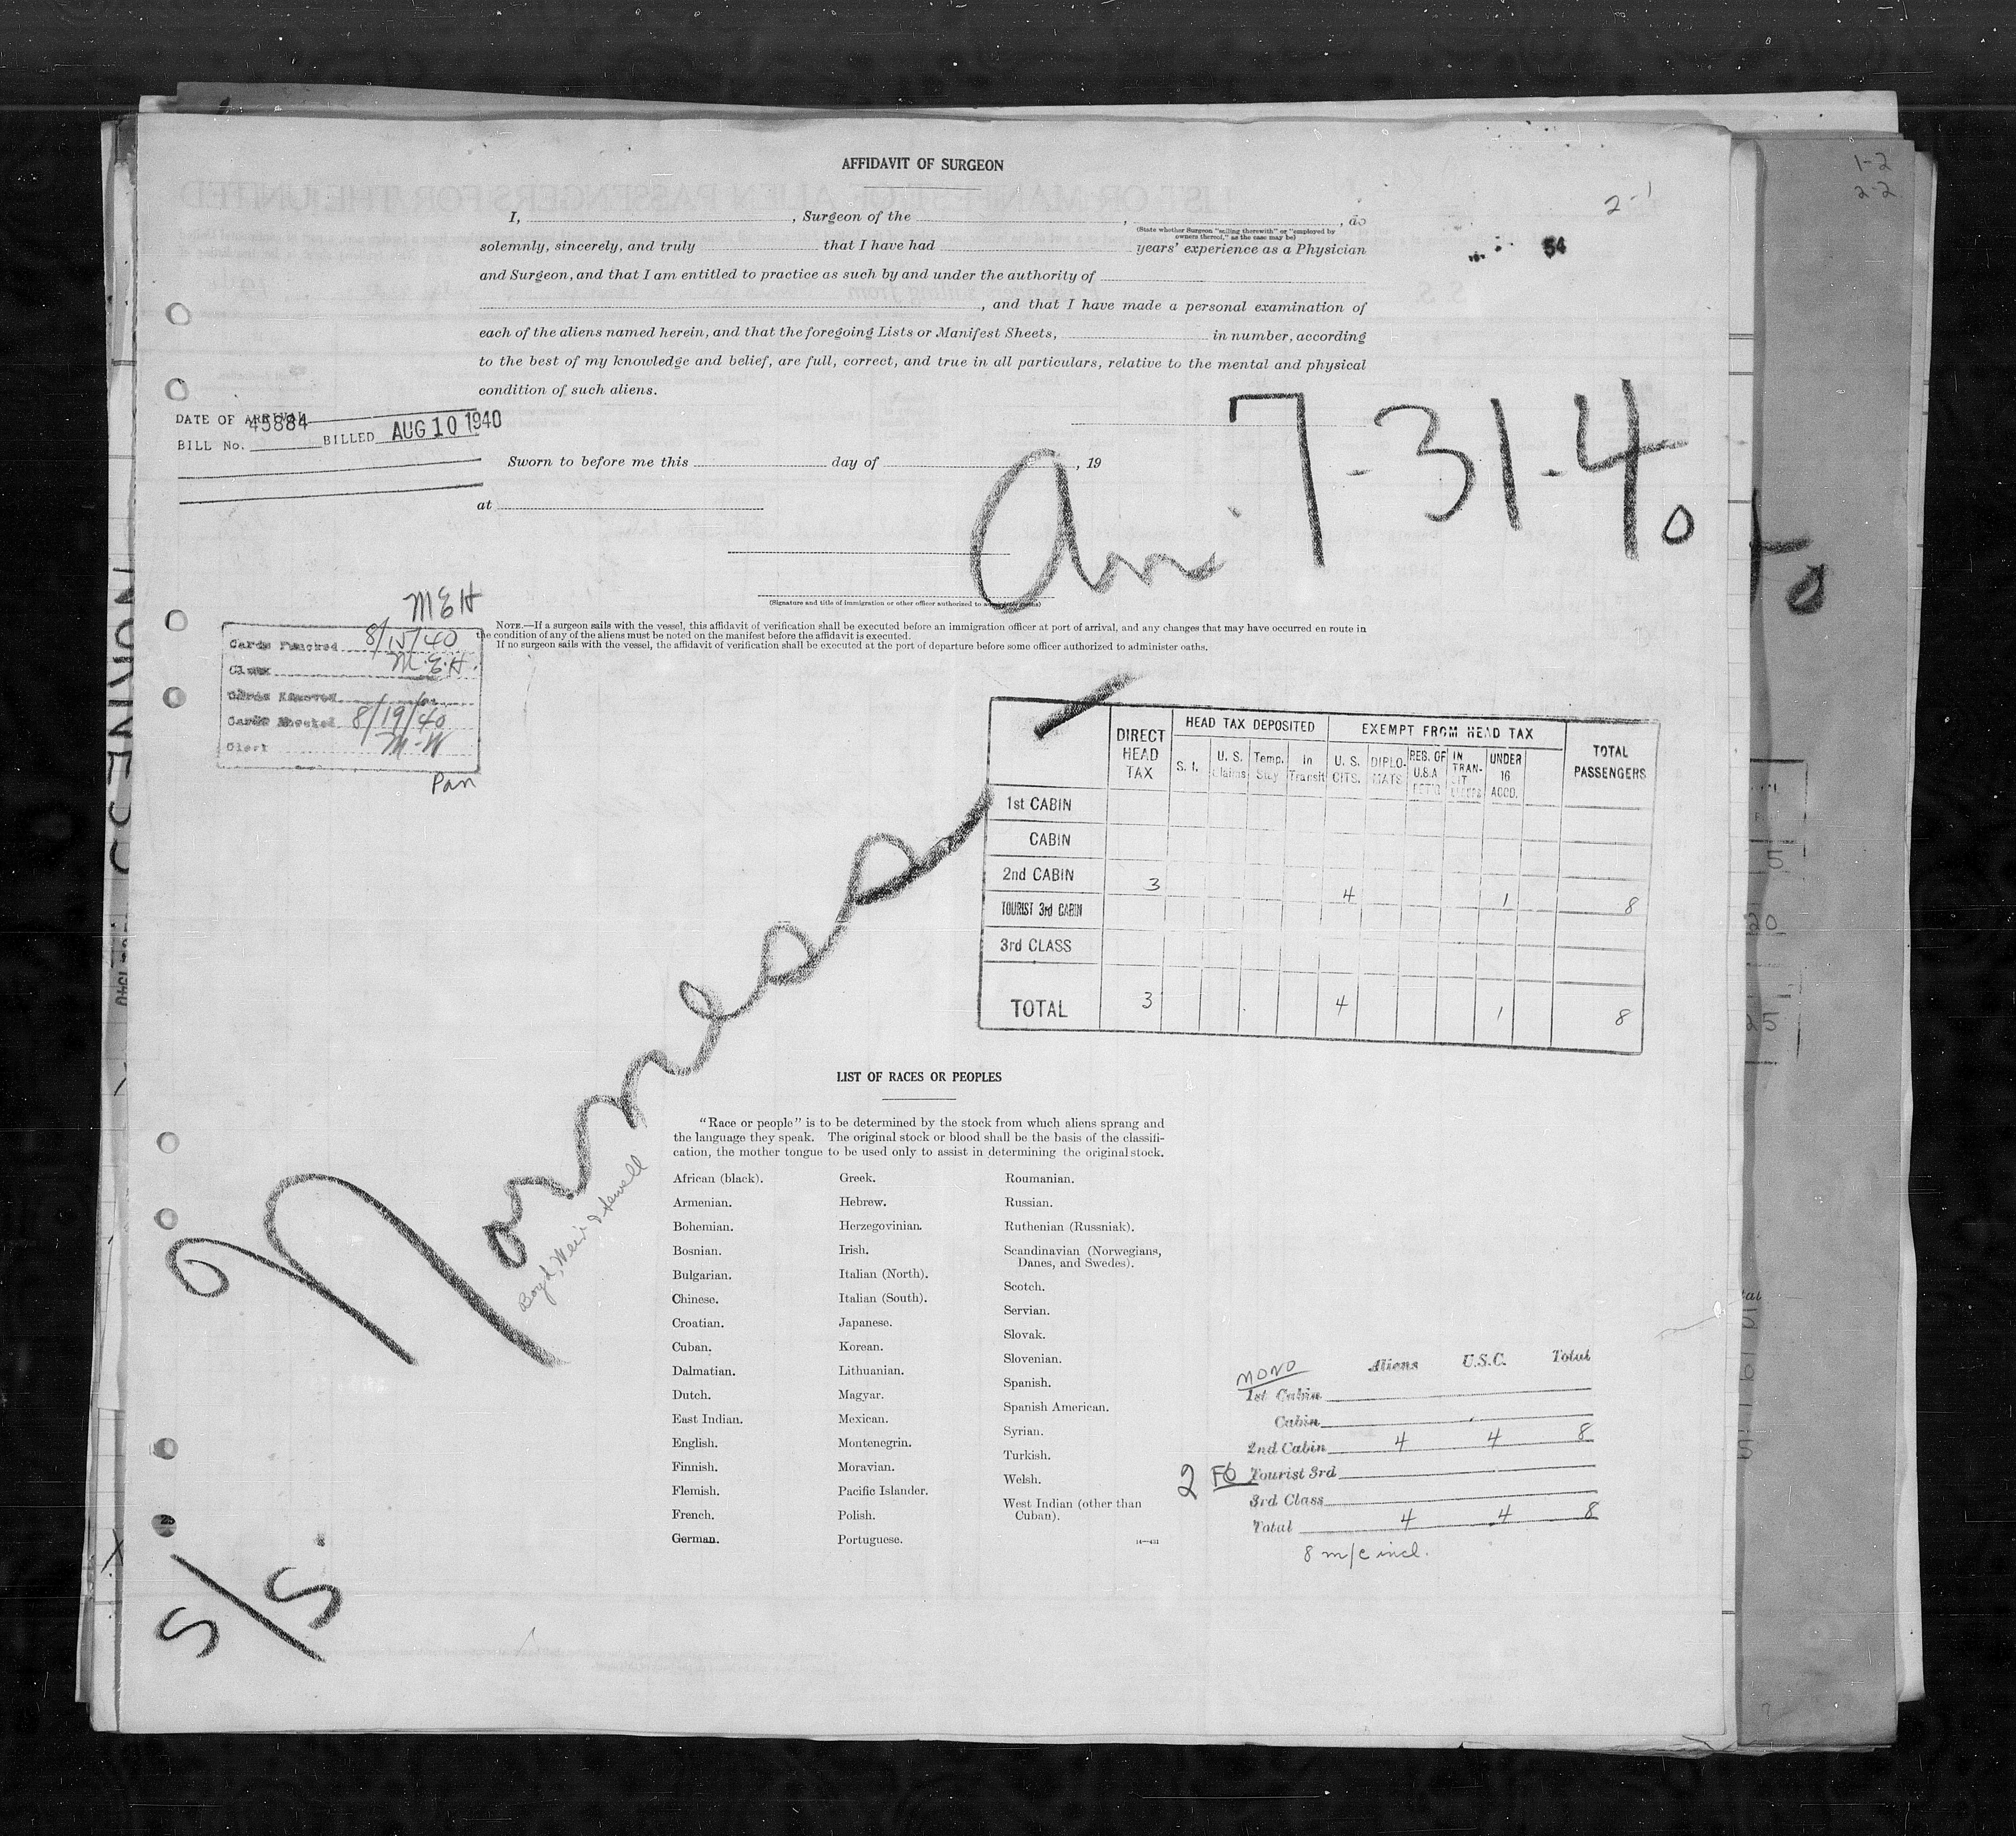 1-2
2-2
AFFIDAVIT OF SURGEON
2-1
54
I, , Surgeon of the , , do
(State whether Surgeon "sailing therewith" or "employed by
owners thereof," as the case may be)
solemnly, sincerely, and truly that I have had years' experience as a Physician
and Surgeon, and that I am entitled to practice as such by and under the authority of
, and that I have made a personal examination of
each of the aliens named herein, and that the foregoing Lists or Manifest Sheets, in number, according
to the best of my knowledge and belief, are full, correct, and true in all particulars, relative to the mental and physical
condition of such aliens.
DATE OF ARRIVAL
45884
BILL No. BILLED AUG 10 1940
Sworn to before me this day of , 19
at
Arr. 7-31-40
(Signature and title of immigration or other officer authorized to
NOTE.—If a surgeon sails with the vessel, this affidavit of verification shall be executed before an immigration officer at port of arrival, and any changes that may have occurred en route in
the condition of any of the aliens must be noted on the manifest before the affidavit is executed.
If no surgeon sails with the vessel, the affidavit of verification shall be executed at the port of departure before some officer authorized to administer oaths.
MEH
Cards Punched 8/15/40
Clerk M.E.H.
Cards
Cards 8/19/40
Clerk M-W
Pan
DIRECT HEAD TAX
HEAD TAX DEPOSITED
EXEMPT FROM HEAD TAX
TOTAL PASSENGERS
S. I.
U. S. Claims
Temp. Stay
In Transit
U. S. CITS.
DIPLO-MATS
RES. OF U.S.A
IN TRAN-SIT
UNDER 16 ACCD.
1st CABIN
CABIN
2nd CABIN 3 4 1 8
TOURIST 3rd CABIN
3rd CLASS
TOTAL 3 4 1 8
S/S.
Norness
Boyd, Weir & Sewell
LIST OF RACES OR PEOPLES
"Race or people" is to be determined by the stock from which aliens sprang and
the language they speak. The original stock or blood shall be the basis of the classifi-
cation, the mother tongue to be used only to assist in determining the original stock.
African (black).
Armenian.
Bohemian.
Bosnian.
Bulgarian.
Chinese.
Croatian.
Cuban.
Dalmatian.
Dutch.
East Indian.
English.
Finnish.
Flemish.
French.
German.
Greek.
Hebrew.
Herzegovinian.
Irish.
Italian (North).
Italian (South).
Japanese.
Korean.
Lithuanian.
Magyar.
Mexican.
Montenegrin.
Moravian.
Pacific Islander.
Polish.
Portuguese.
Roumanian.
Russian.
Ruthenian (Russniak).
Scandinavian (Norwegians,
Danes, and Swedes).
Scotch.
Servian.
Slovak.
Slovenian.
Spanish.
Spanish American.
Syrian.
Turkish.
Welsh.
West Indian (other than
Cuban).
MONO
Aliens U.S.C. Total
1st Cabin
Cabin
2nd Cabin 4 4 8
2 FO Tourist 3rd
3rd Class
Total 4 4 8
8 m/c incl.